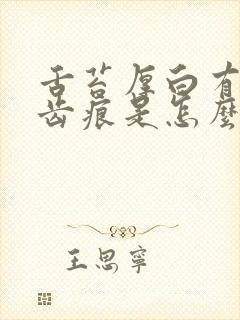 舌苔厚白有
齿痕是怎麽
王思寧